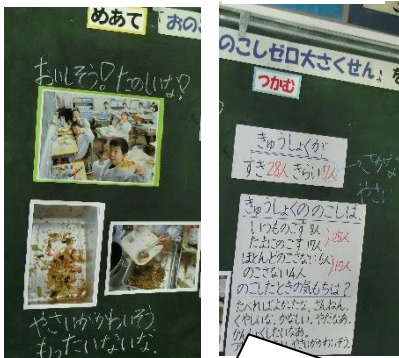 めあて
おの
おいしそう!たのしいな!
やさいがかわいそう
もったいないな。
のこしゼロ大さくせん!を
つかむ
きゅうしょくが
すき28人きらい7人
きゅうしょくののこしは
いつものこす8人
たまにのこす17人
25人
ほとんどのこさない6人
のこさない4人
のこしたときの気もちは?
たべればよかったな、ざんねん、
くやしいな、かなしい、やだなあ、
やさいがかわいそう